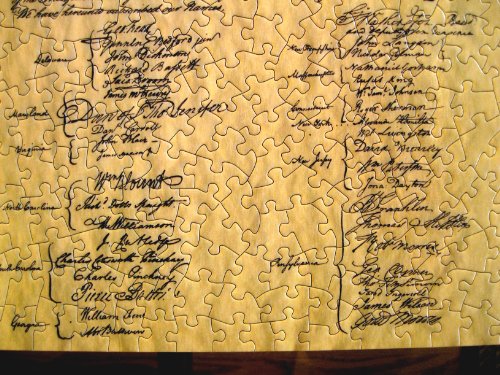 We have hereunto subscribed our Names,
Geo: Read
Gunning Bedford jun
John Dickinson
Richard Bassett
Delaware
Jaco: Broom
James McHenry
Maryland
Dan of St Thos Jenifer
Danl Carroll
John Blair
Virginia
James Madison Jr
Wm Blount
North Carolina
Richd Dobbs Spaight
Hu Williamson
J. Rutledge
South Carolina
Charles Cotesworth Pinckney
Charles Pinckney
Pierce Butler
Georgia
William Few
Abr Baldwin
Go Washington
and deputy from Virginia
New Hampshire
John Langdon
Nicholas Gilman
Massachusetts
Nathaniel Gorham
Rufus King
Connecticut
Wm Saml Johnson
Roger Sherman
New York
Alexander Hamilton
Wil Livingston
New Jersey
David Brearley
Wm Paterson
Jona Dayton
B Franklin
Thomas Mifflin
Robt Morris
Geo Clymer
Pensylvania
Thos FitzSimons
Jared Ingersoll
James Wilson
Gouv Morris